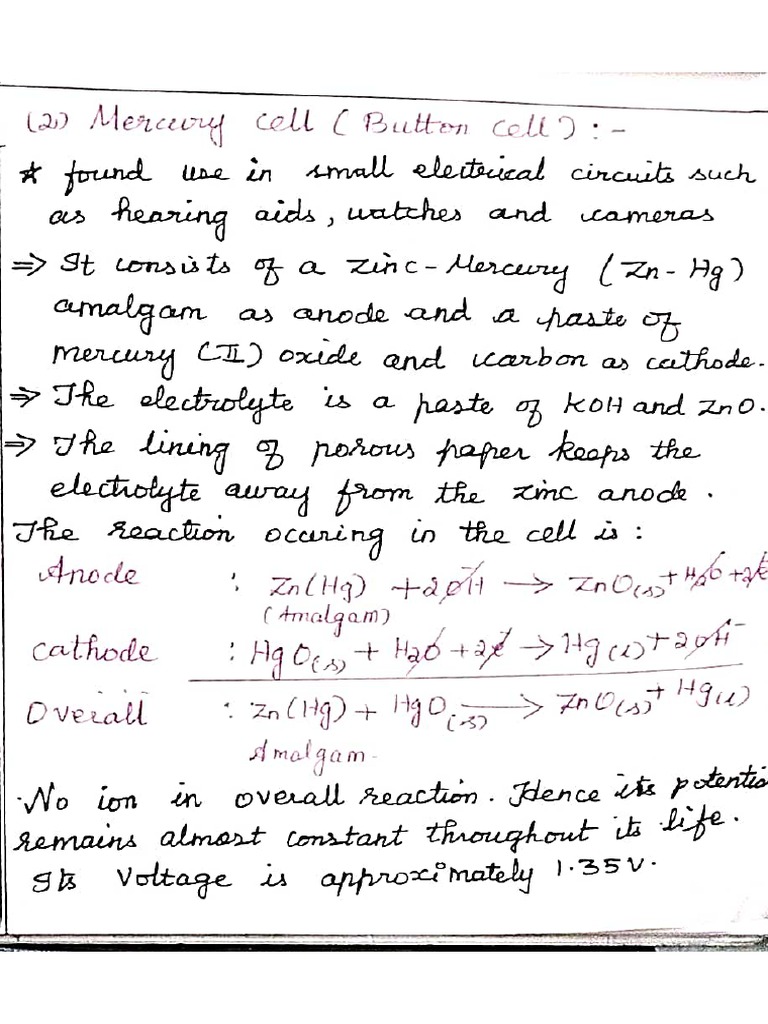 (2) Mercury cell (Button cell) :-
* found use in small electrical circuits such
as hearing aids, watches and cameras
⇒ It consists of a zinc-Mercury (Zn-Hg)
amalgam as anode and a paste of
mercury (II) oxide and carbon as cathode.
⇒ The electrolyte is a paste of KOH and ZnO.
⇒ The lining of porous paper keeps the
electrolyte away from the zinc anode.
The reaction occuring in the cell is :
Anode : Zn(Hg) + 2OH⁻ → ZnO(s) + H2O + 2e
(Amalgam)
Cathode : HgO(s) + H2O + 2e⁻ → Hg(l) + 2OH⁻
Overall : Zn(Hg) + HgO(s) → ZnO(s) + Hg(l)
Amalgam.
No ion in overall reaction. Hence its potentia
remains almost constant throughout its life.
Its Voltage is approximately 1.35V.